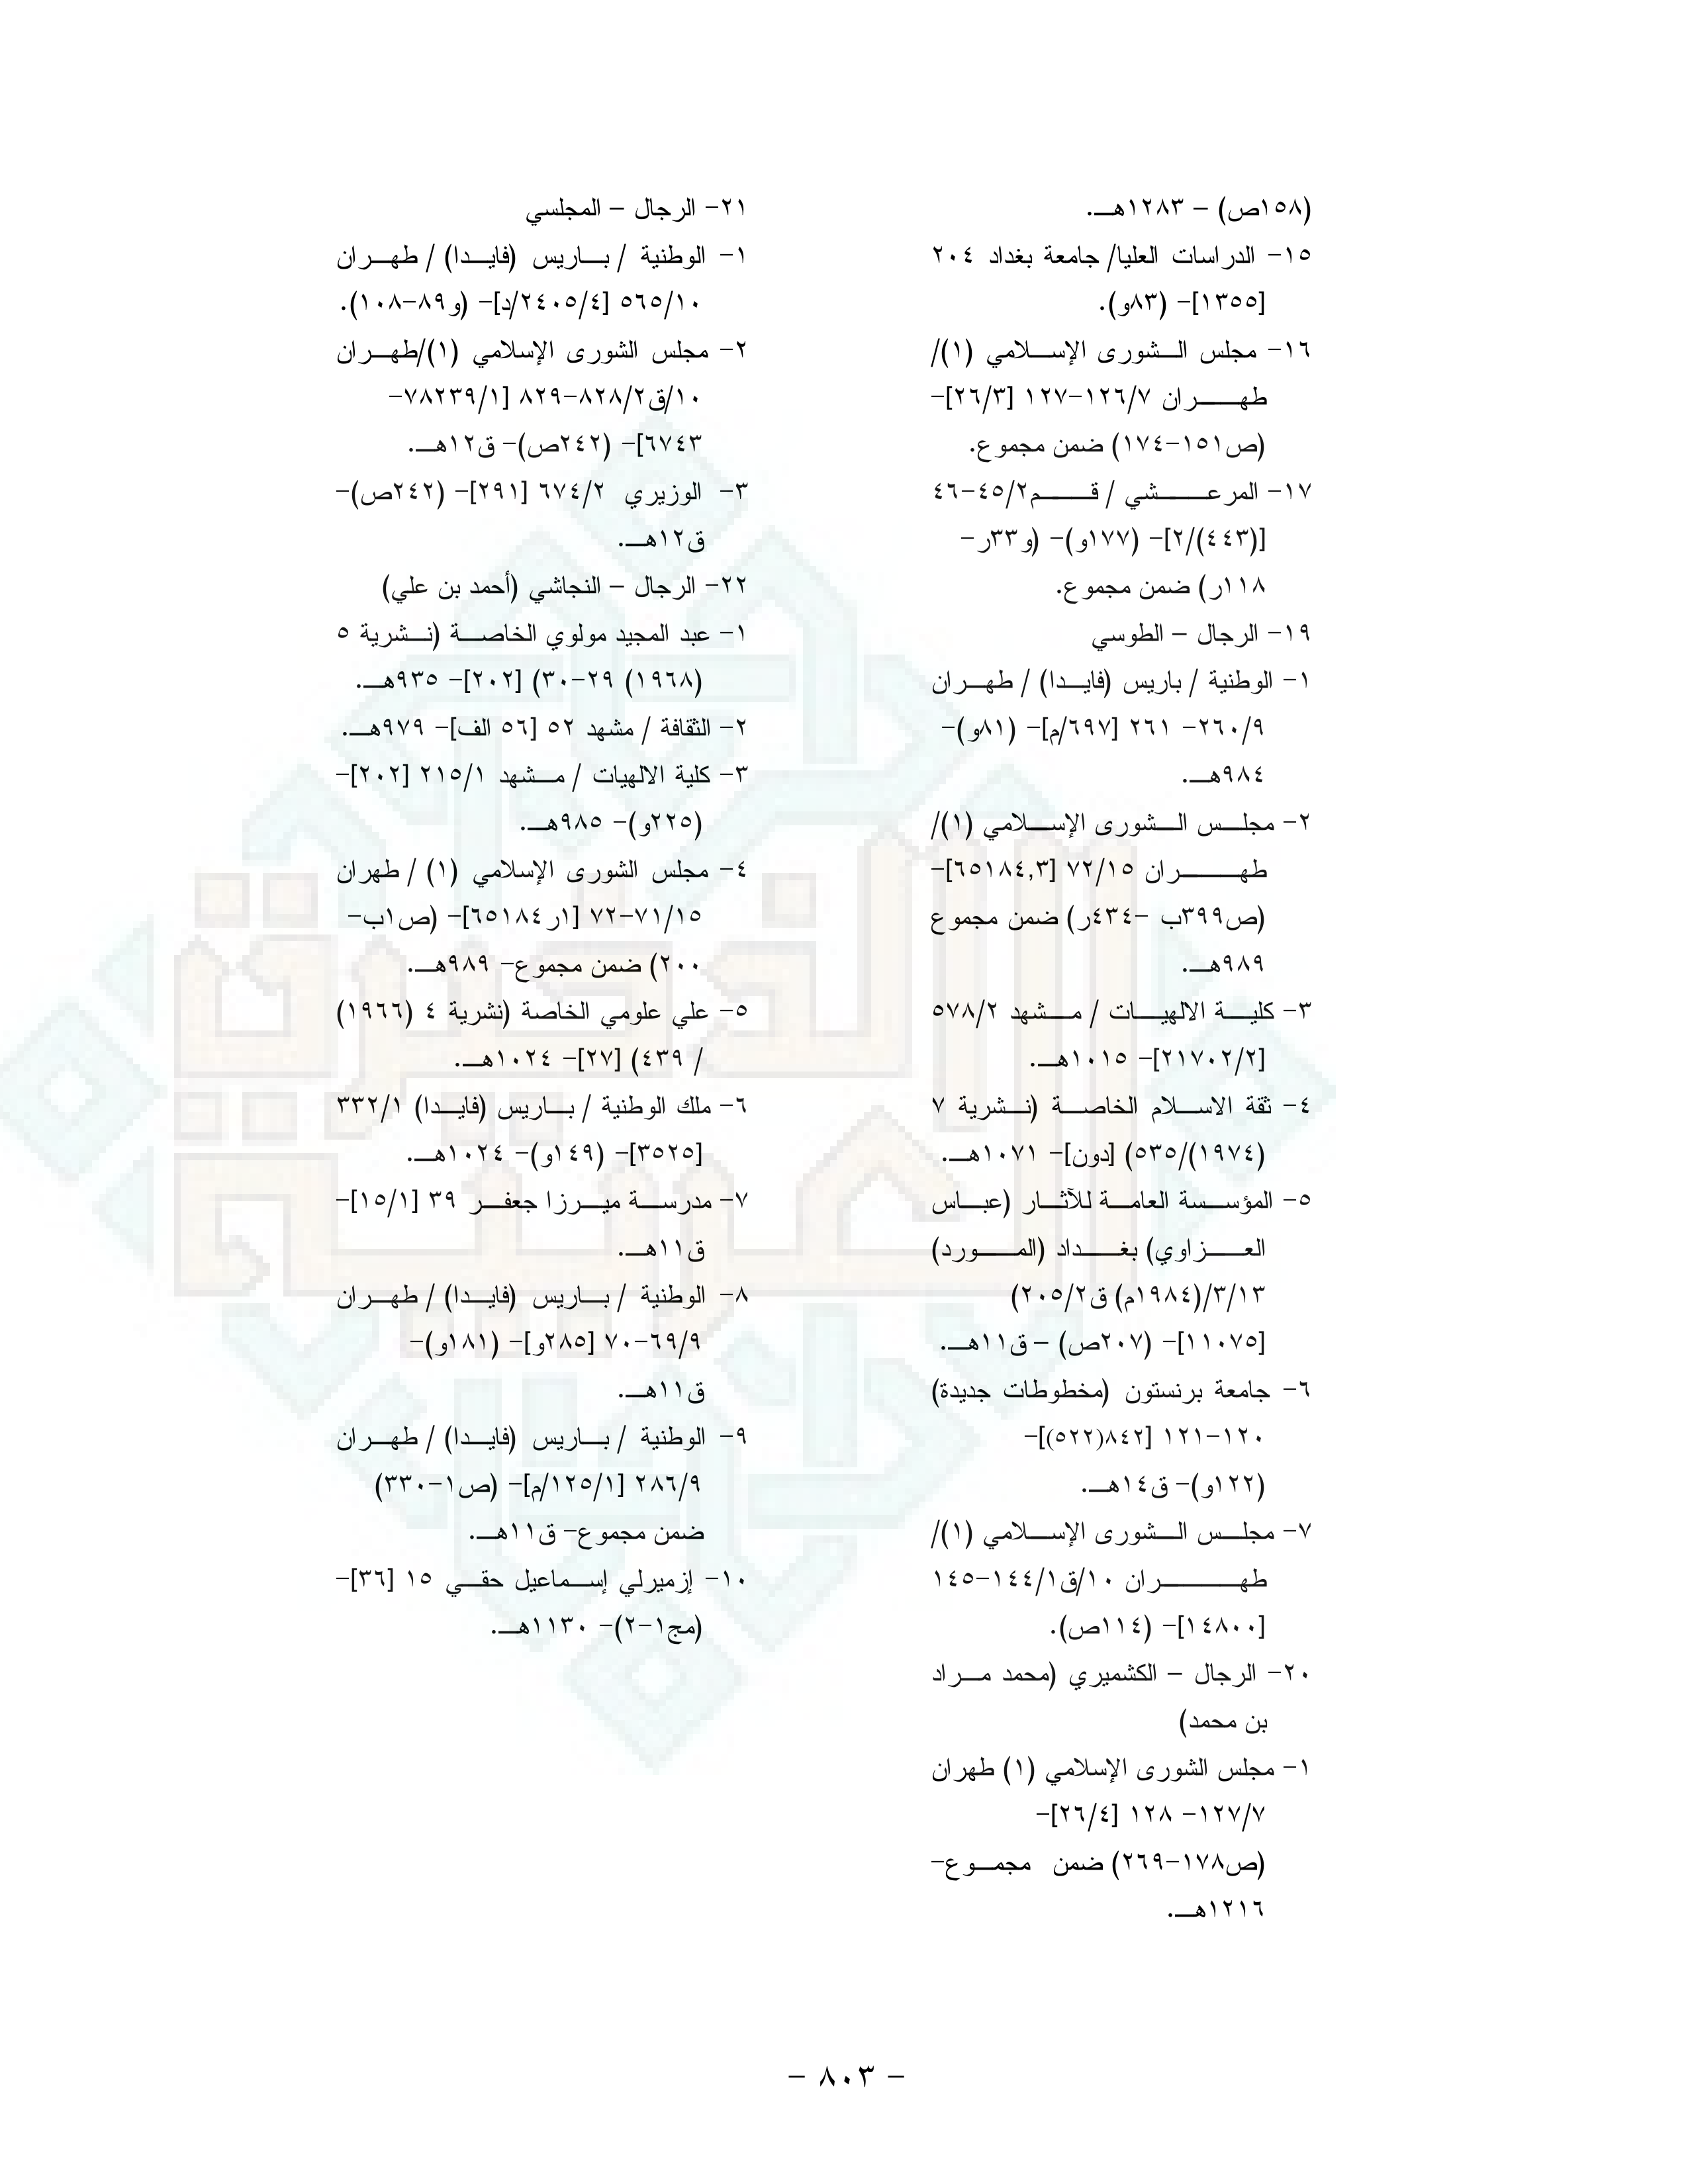 (١٥٨ص) – ١٢٨٣هـ.
١٥- الدراسات العليا/ جامعة بغداد ٢٠٤
[١٣٥٥]- (٨٣و).
١٦- مجلس الشورى الإسلامي (١)/
طهران ١٢٦/٧-١٢٧ [٢٦/٣]-
(ص١٥١-١٧٤) ضمن مجموع.
١٧- المرعشي / قم٤٥/٢-٤٦
[(٤٤٣)/٢]- (١٧٧و)- (و٣٣ر-
١١٨ر) ضمن مجموع.
١٩- الرجال – الطوسي
١- الوطنية / باريس (فايدا) / طهران
٢٦٠/٩- ٢٦١ [٦٩٧/م]- (٨١و)-
٩٨٤هـ.
٢- مجلس الشورى الإسلامي (١)/
طهران ٧٢/١٥ [٦٥١٨٤,٣]-
(ص٣٩٩ب -٤٣٤ر) ضمن مجموع
٩٨٩هـ.
٣- كلية الالهيات / مشهد ٥٧٨/٢
[٢١٧٠٢/٢]- ١٠١٥هـ.
٤- ثقة الاسلام الخاصة (نشرية ٧
(١٩٧٤)/٥٣٥) [دون]- ١٠٧١هـ.
٥- المؤسسة العامة للآثار (عباس
العزاوي) بغداد (المورد)
٣/١٣/(١٩٨٤م) ق٢٠٥/٢)
[١١٠٧٥]- (٢٠٧ص) – ق١١هـ.
٦- جامعة برنستون (مخطوطات جديدة)
١٢٠-١٢١ [٨٤٢(٥٢٢)]-
(١٢٢و)- ق١٤هـ.
٧- مجلس الشورى الإسلامي (١)/
طهران ١٠/ق١٤٤/١-١٤٥
[١٤٨٠٠]- (١١٤ص).
٢٠- الرجال – الكشميري (محمد مراد
بن محمد)
١- مجلس الشورى الإسلامي (١) طهران
١٢٧/٧- ١٢٨ [٢٦/٤]-
(ص١٧٨-٢٦٩) ضمن مجموع-
١٢١٦هـ.
٢١- الرجال – المجلسي
١- الوطنية / باريس (فايدا) / طهران
٥٦٥/١٠ [٢٤٠٥/٤/د]- (و٨٩-١٠٨).
٢- مجلس الشورى الإسلامي (١)/طهران
١٠/ق٨٢٨/٢-٨٢٩ [٧٨٢٣٩/١-
٦٧٤٣]- (٢٤٢ص)- ق١٢هـ.
٣- الوزيري ٦٧٤/٢ [٢٩١]- (٢٤٢ص)-
ق١٢هـ.
٢٢- الرجال – النجاشي (أحمد بن علي)
١- عبد المجيد مولوي الخاصة (نشرية ٥
(١٩٦٨) ٢٩-٣٠) [٢٠٢]- ٩٣٥هـ.
٢- الثقافة / مشهد ٥٢ [٥٦ الف]- ٩٧٩هـ.
٣- كلية الالهيات / مشهد ٢١٥/١ [٢٠٢]-
(٢٢٥و)- ٩٨٥هـ.
٤- مجلس الشورى الإسلامي (١) / طهران
٧١/١٥-٧٢ [١ر٦٥١٨٤]- (ص١ب-
٢٠٠) ضمن مجموع- ٩٨٩هـ.
٥- علي علومي الخاصة (نشرية ٤ (١٩٦٦)
/ ٤٣٩) [٢٧]- ١٠٢٤هـ.
٦- ملك الوطنية / باريس (فايدا) ٣٣٢/١
[٣٥٢٥]- (١٤٩و)- ١٠٢٤هـ.
٧- مدرسة ميرزا جعفر ٣٩ [١٥/١]-
ق١١هـ.
٨- الوطنية / باريس (فايدا) / طهران
٦٩/٩-٧٠ [٢٨٥و]- (١٨١و)-
ق١١هـ.
٩- الوطنية / باريس (فايدا) / طهران
٢٨٦/٩ [١٢٥/١/م]- (ص١-٣٣٠)
ضمن مجموع- ق١١هـ.
١٠- إزميرلي إسماعيل حقي ١٥ [٣٦]-
(مج١-٢)- ١١٣٠هـ.
- ٨٠٣ -